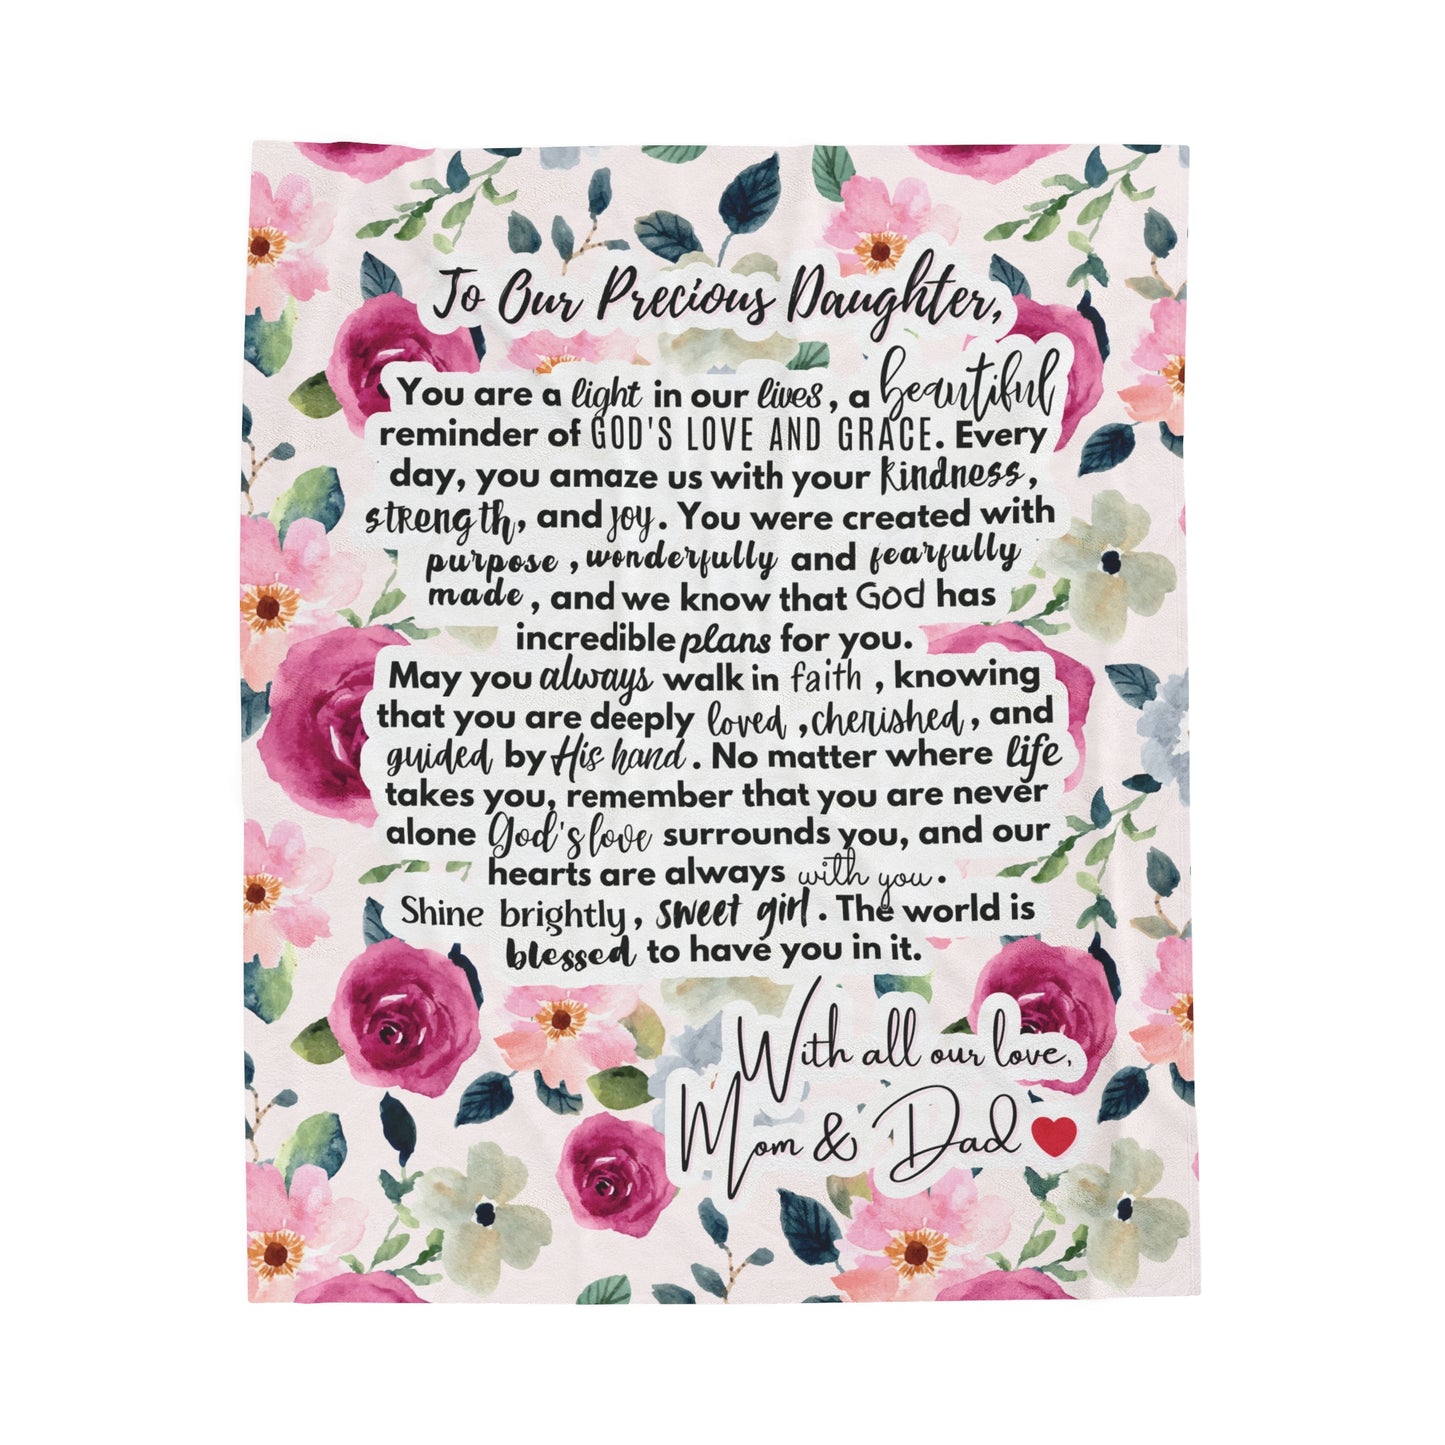 To Our Precious Daughter,
You are a light in our lives, a beautiful
reminder of GOD'S LOVE AND GRACE. Every
day, you amaze us with your kindness,
strength, and joy. You were created with
purpose, wonderfully and fearfully
made, and we know that God has
incredible plans for you.
May you always walk in faith, knowing
that you are deeply loved, cherished, and
guided by His hand. No matter where life
takes you, remember that you are never
alone God's love surrounds you, and our
hearts are always with you.
Shine brightly, sweet girl. The world is
blessed to have you in it.
With all our love,
Mom & Dad